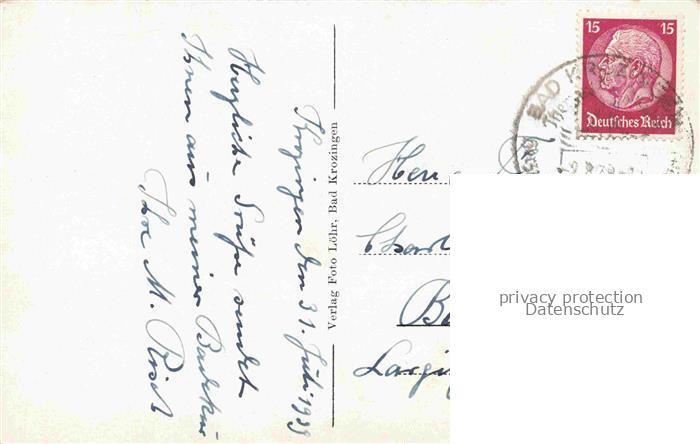 Krozingen den 31. Juli 1939
Herzliche Grüße sendet
Ihnen aus meiner Badekur
Ihre M.
Verlag Foto Löhr, Bad Krozingen
15 15
Deutsches Reich
BAD KROZINGEN
Herrn
privacy protection
Datenschutz